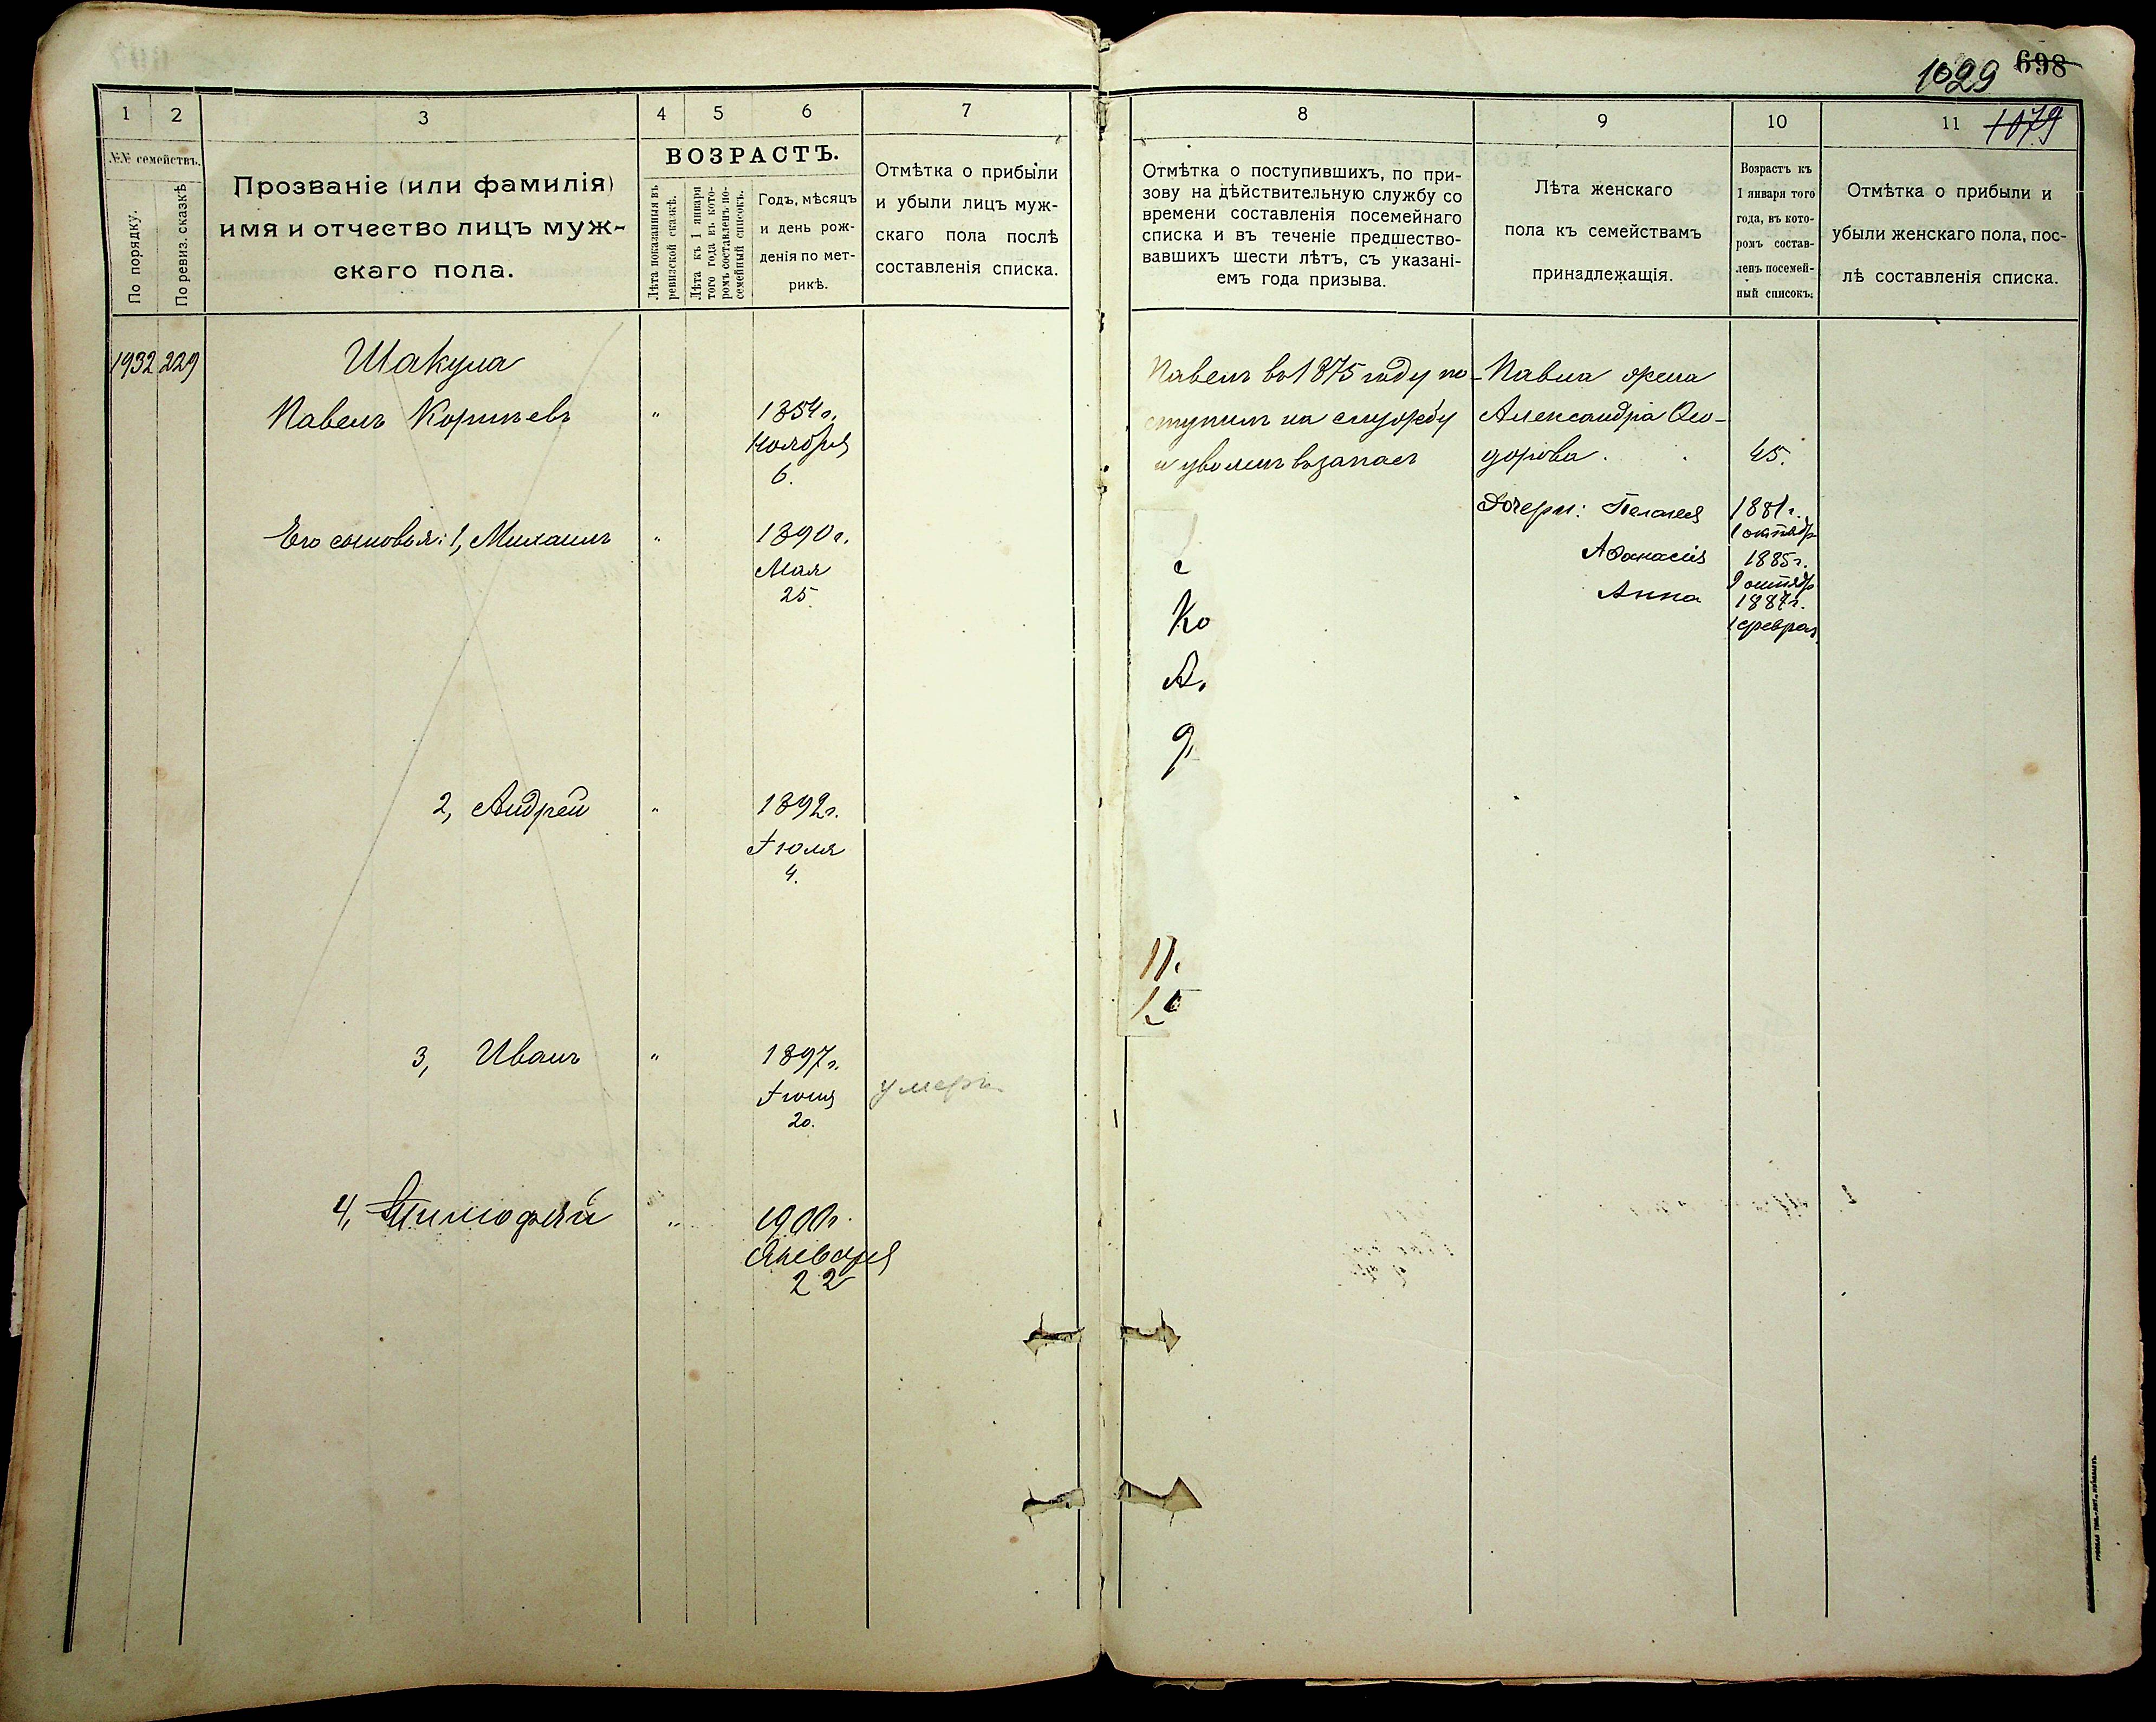 698
1029
1079
1
2
3
4
5
6
7
№№ семействъ.
По порядку.
По ревиз. сказкѣ
Прозваніе (или фамилія)
имя и отчество лицъ муж-
скаго пола.
ВОЗРАСТЪ.
Лѣта показанныя въ
ревизской сказкѣ.
Лѣта къ 1 января
того года въ кото-
ромъ составленъ по-
семейный списокъ.
Годъ, мѣсяцъ
и день рож-
денія по мет-
рикѣ.
Отмѣтка о прибыли
и убыли лицъ муж-
скаго пола послѣ
составленія списка.
1932 229
Шакула
Павелъ Корнѣевъ " 1854 г.
Ноября
6.
Его сыновья: 1, Михаилъ " 1890 г.
Мая
25.
2, Андрей " 1892 г.
Іюля
4.
3, Иванъ " 1897 г.
Іюня умеръ
20.
4, Тимофей " 1900 г.
Января
22
8
9
10
11
Отмѣтка о поступившихъ, по при-
зову на дѣйствительную службу со
времени составленія посемейнаго
списка и въ теченіе предшество-
вавшихъ шести лѣтъ, съ указані-
емъ года призыва.
Лѣта женскаго
пола къ семействамъ
принадлежащія.
Возрастъ къ
1 января того
года, въ кото-
ромъ состав-
ленъ посемей-
ный списокъ;
Отмѣтка о прибыли и
убыли женскаго пола, пос-
лѣ составленія списка.
Павелъ въ 1875 году по-
ступилъ на службу
и уволенъ въ запасъ
Ко
11.
Павла жена
Александра Ѳео-
дорова. 45.
Дочери: Пелагея 1881 г.
1 октябр
Аѳанасія 1885 г.
9 октябр
Анна 1887 г.
1 феврал